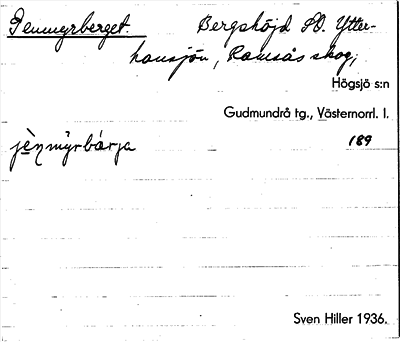 Jennmyrberget. Bergshöjd SO. Ytter-
hansjön, Ramsås skog,
Högsjö s:n
Gudmundrå tg., Västernorrl. l.
189
Sven Hiller 1936.